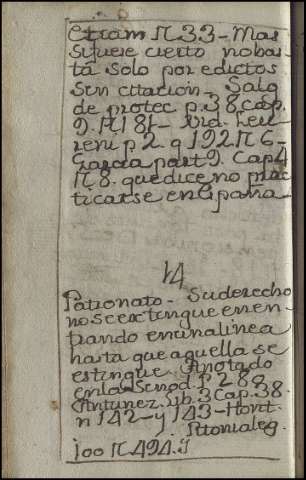 etiam N 33 - Mas
si fuese cierto no bas
ta solo por edictos
sin citacion - Salg
de protec p. 3. cap.
9. N 181 - vid.
reni p 2 q 192 N 6 -
Garcia part 9. Cap 4
N 8. que dice no prac
ticarse en España -
Patronato - Su derecho
no se extingue en en
trando en una linea
hasta que aquella se
estingue Anotado
en la Synod. p 288.
Antunez lib. 3 cap. 38.
n 142 - y 143 - Hont.
100 N 494.